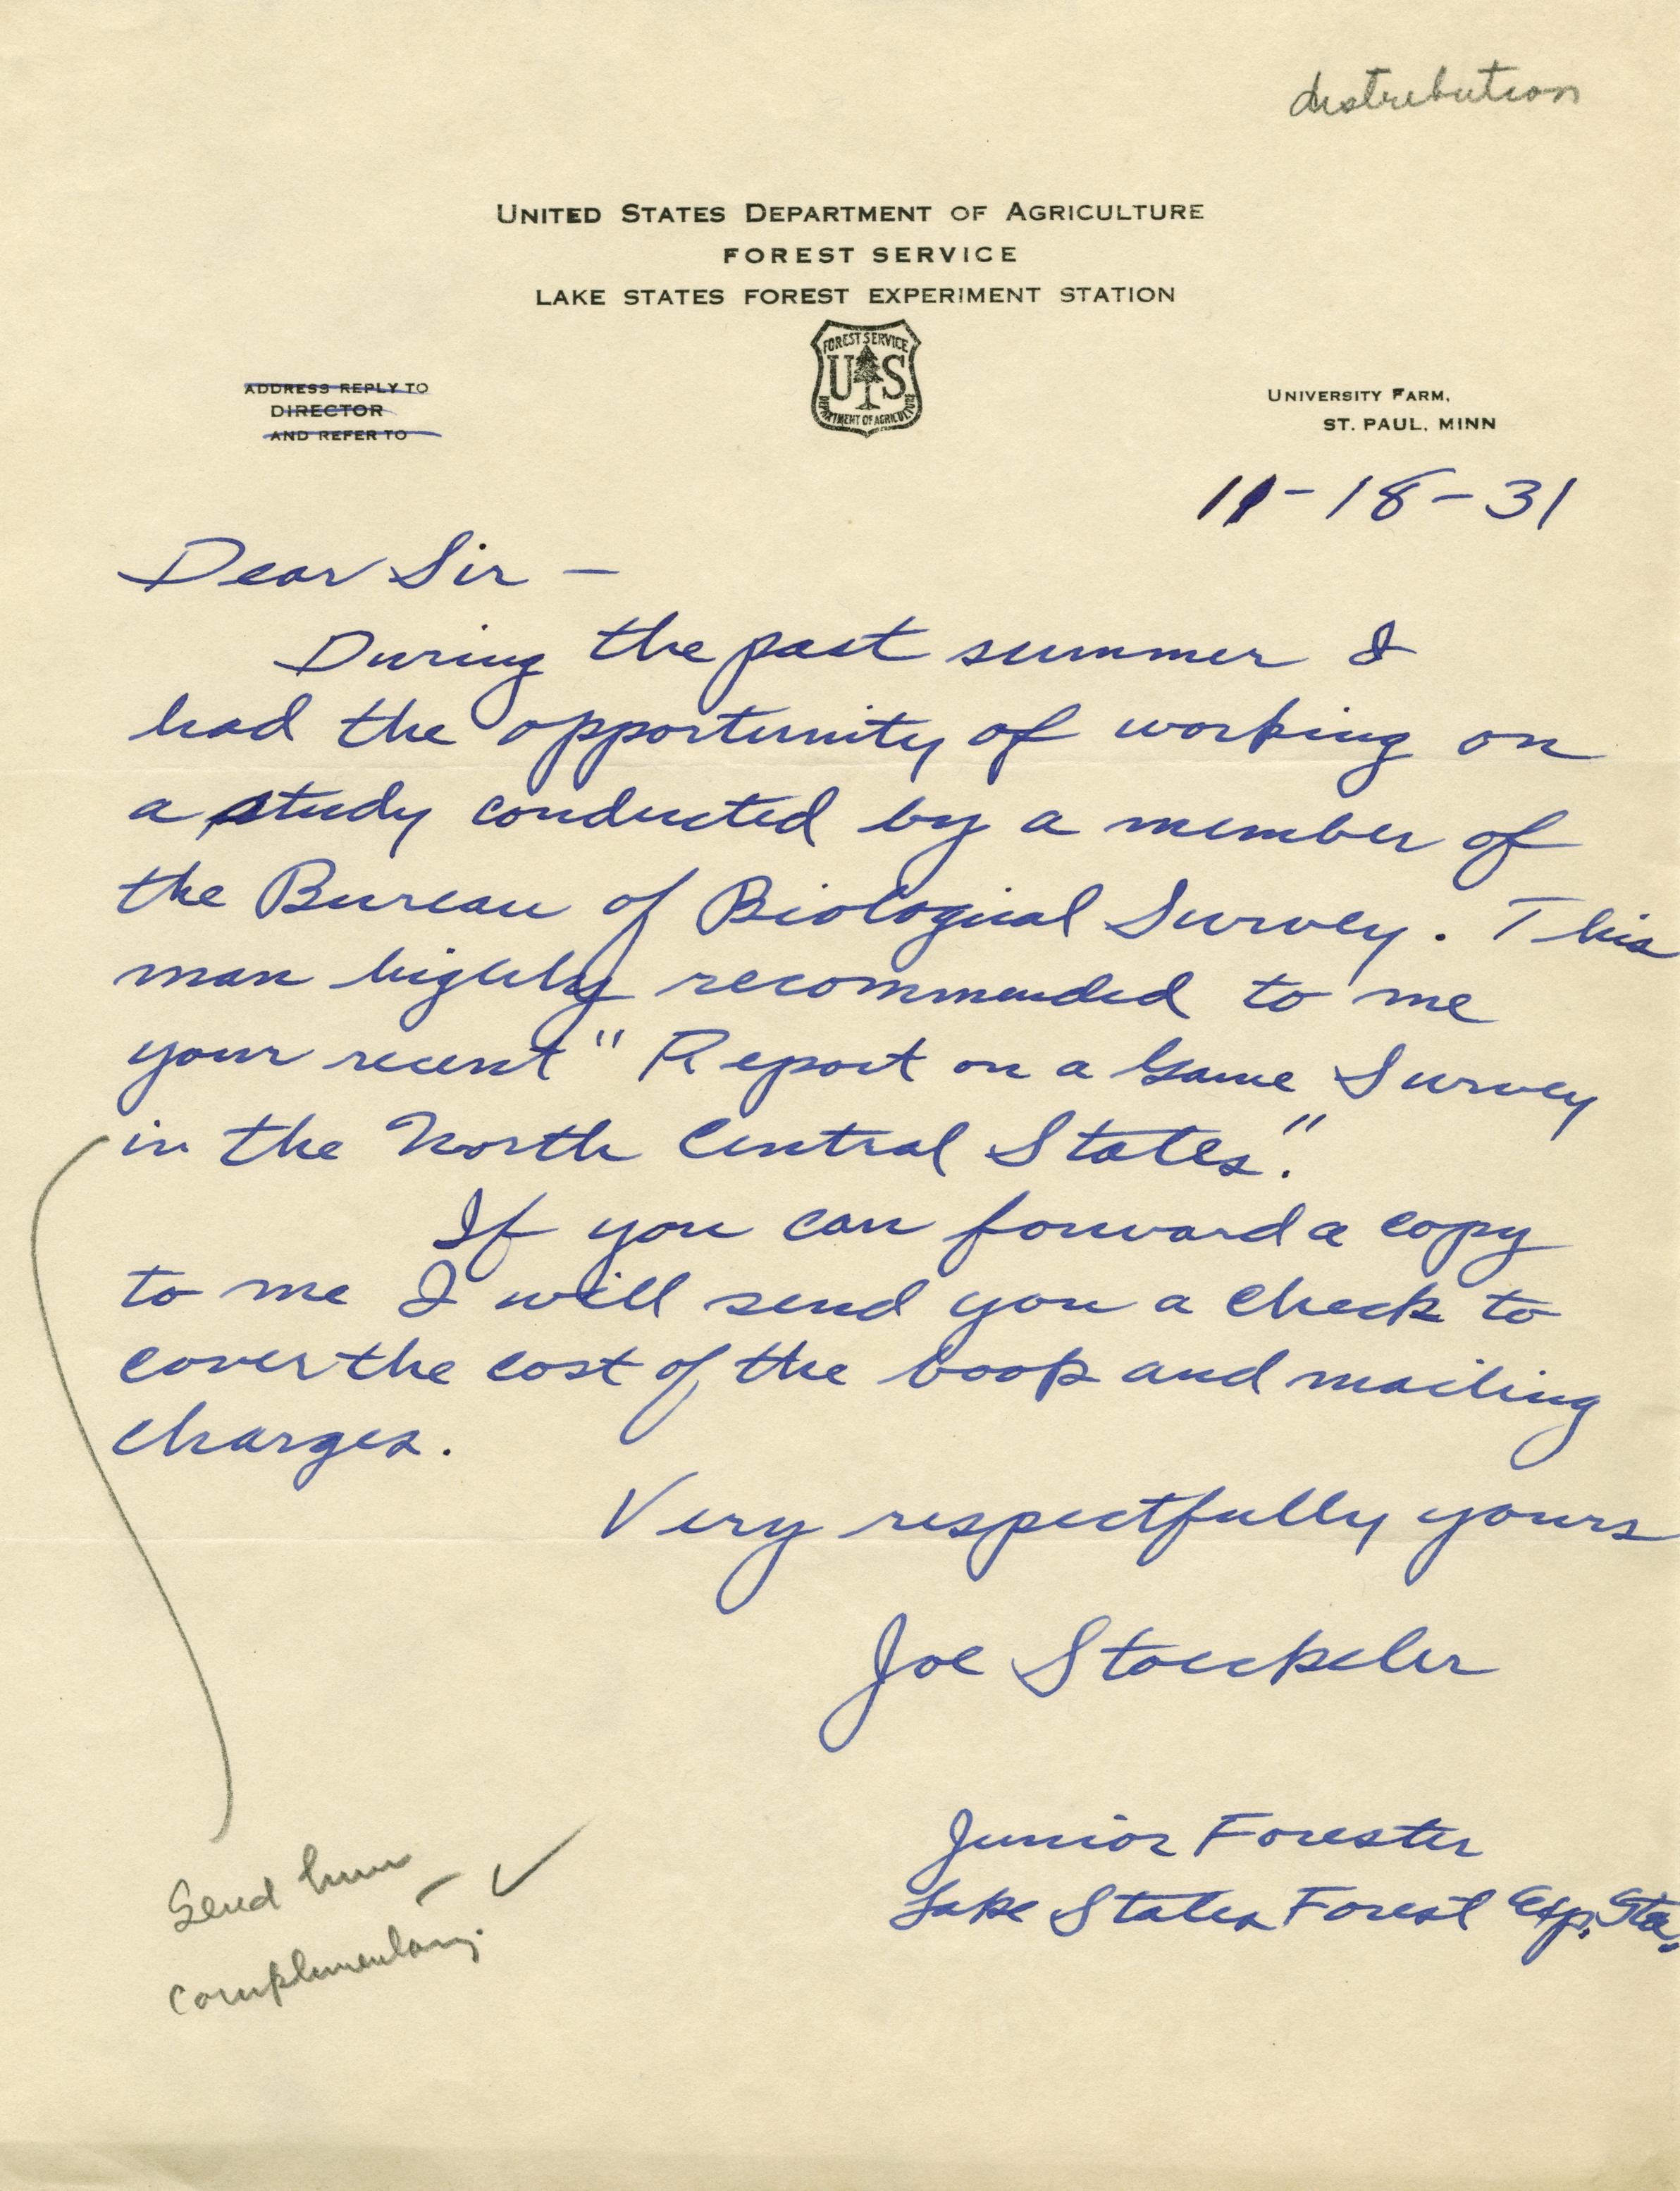 distribution
UNITED STATES DEPARTMENT OF AGRICULTURE
FOREST SERVICE
LAKE STATES FOREST EXPERIMENT STATION
FOREST SERVICE
US
DEPARTMENT OF AGRICULTURE
ADDRESS REPLY TO
DIRECTOR
AND REFER TO
UNIVERSITY FARM,
ST. PAUL, MINN
11-18-31
Dear Sir —
During the past summer I
had the opportunity of working on
a study conducted by a member of
the Bureau of Biological Survey. This
man highly recommended to me
your recent "Report on a Game Survey
in the North Central States."
If you can forward a copy
to me I will send you a check to
cover the cost of the book and mailing
charges.
Very respectfully yours
Joe Stoeckeler
Junior Forester
Lake States Forest Exp. Sta.
Send him — ✓
complimentary.